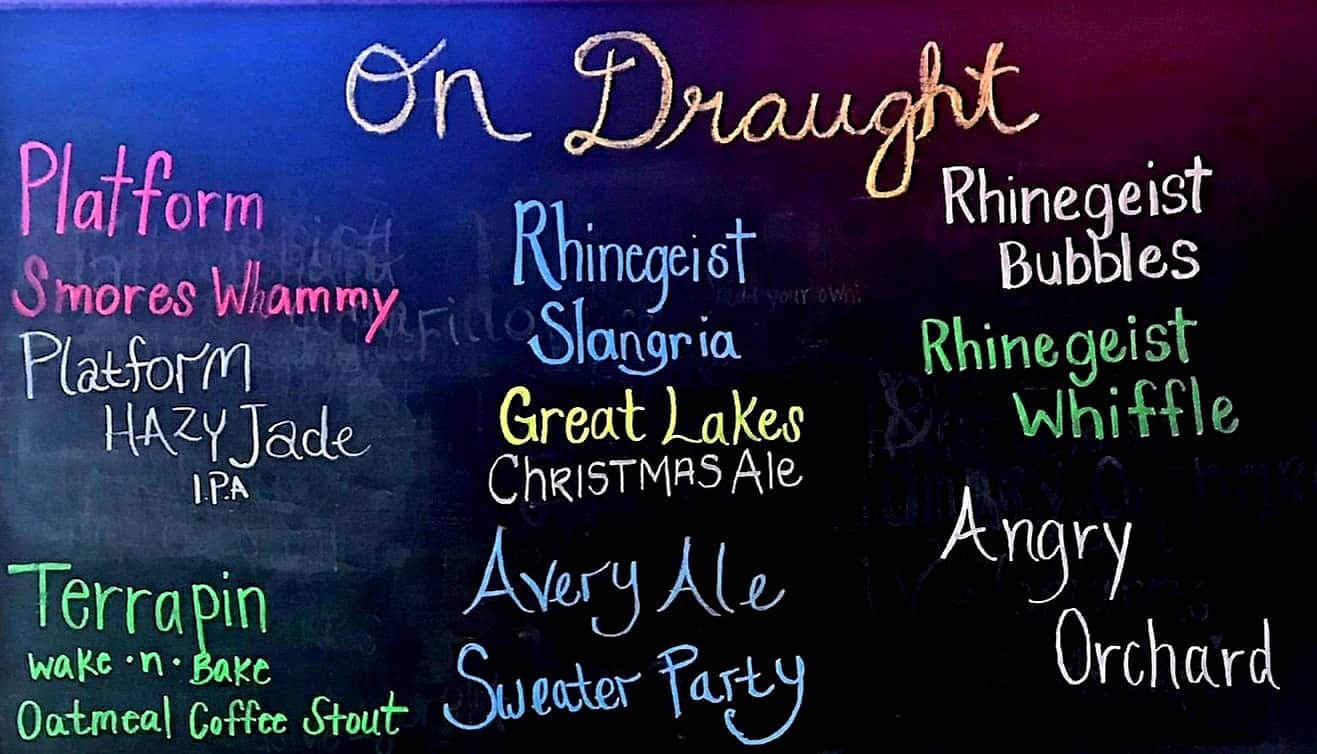 On Draught
Platform
Smores Whammy
Platform
HAZY Jade
I.P.A
Terrapin
Wake·n·Bake
Oatmeal Coffee Stout
Rhinegeist
Slangria
Great Lakes
CHRISTMAS Ale
Avery Ale
Sweater Party
Rhinegeist
Bubbles
Rhinegeist
Whiffle
Angry
Orchard